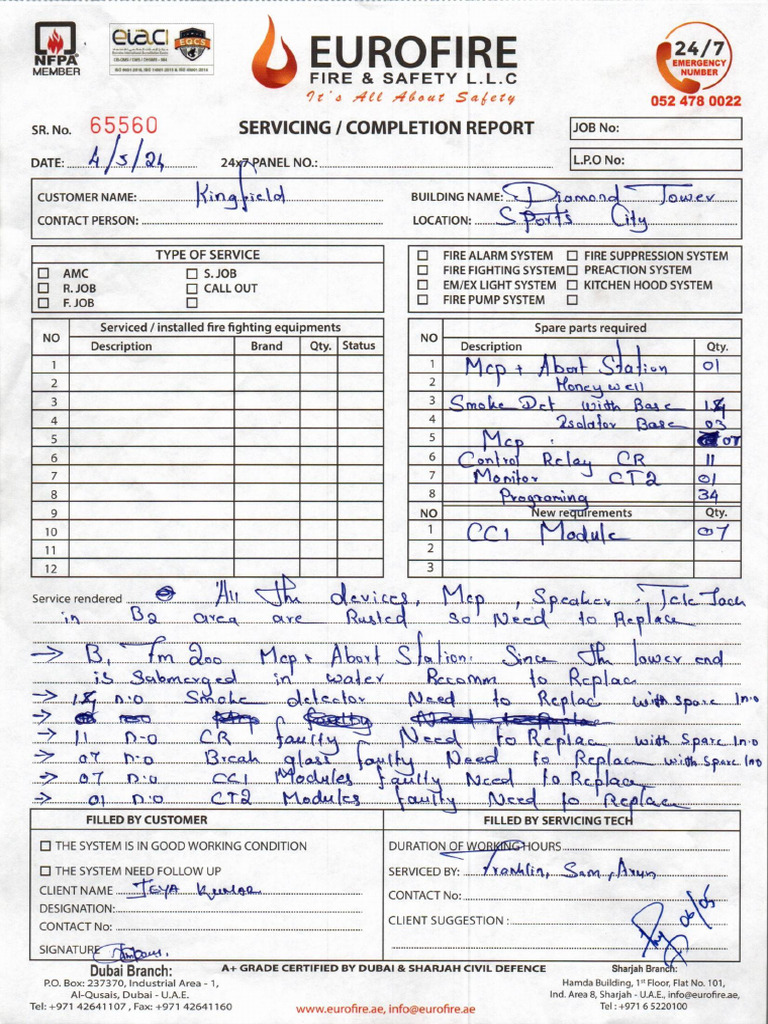 NFPA
MEMBER
eiaci
EQCS
EUROFIRE
FIRE & SAFETY L.L.C
It's All About Safety
24/7
EMERGENCY
NUMBER
052 478 0022
SR. No. 65560
SERVICING / COMPLETION REPORT
JOB No:
DATE: 4/5/24
24x7 PANEL NO.:
L.P.O No:
CUSTOMER NAME: Kingfield
BUILDING NAME: Diamond Tower
CONTACT PERSON:
LOCATION: Sports City
TYPE OF SERVICE
AMC
S. JOB
R. JOB
CALL OUT
F. JOB
FIRE ALARM SYSTEM
FIRE SUPPRESSION SYSTEM
FIRE FIGHTING SYSTEM
PREACTION SYSTEM
EM/EX LIGHT SYSTEM
KITCHEN HOOD SYSTEM
FIRE PUMP SYSTEM
NO
Serviced / installed fire fighting equipments
Description Brand Qty. Status
1
2
3
4
5
6
7
8
9
10
11
12
NO
Spare parts required
Description Qty.
1 Mcp + Abort Station 01
2 Honeywell
3 Smoke Dct with Base
4 Isolator Base 03
5 Mcp 07
6 Control Relay CR 11
7 Monitor CT2 01
8 Programing 34
NO New requirements Qty.
1 CC1 Module 07
2
3
Service rendered All the devices, Mcp, Speaker, Tele Jack
in B2 area are Rusted so Need to Replace
→ B, Fm 200 Mcp + Abort Station. Since the lower end
is submerged in water Recomm to Replace
→ n.o Smoke detector Need to Replac with spare Ino
→
→ 11 n-o CR faulty Need to Replac with Spare Ino
→ 07 n.o Break glass faulty Need to Replac with Spare Ino
→ 07 n.o CC1 Modules faulty Need to Replac
→ 01 n.o CT2 Modules faulty Need to Replac
FILLED BY CUSTOMER
THE SYSTEM IS IN GOOD WORKING CONDITION
THE SYSTEM NEED FOLLOW UP
CLIENT NAME JEYA Kumar
DESIGNATION:
CONTACT No:
SIGNATURE
FILLED BY SERVICING TECH
DURATION OF WORKING HOURS
SERVICED BY: Franklin, Sam, Arun
CONTACT No:
CLIENT SUGGESTION :
06/05
Dubai Branch:
P.O. Box: 237370, Industrial Area - 1,
Al-Qusais, Dubai - U.A.E.
Tel: +971 42641107 , Fax: +971 42641160
A+ GRADE CERTIFIED BY DUBAI & SHARJAH CIVIL DEFENCE
www.eurofire.ae, info@eurofire.ae
Sharjah Branch:
Hamda Building, 1st Floor, Flat No. 101,
Ind. Area 8, Sharjah - U.A.E., info@eurofire.ae,
Tel : +971 6 5220100